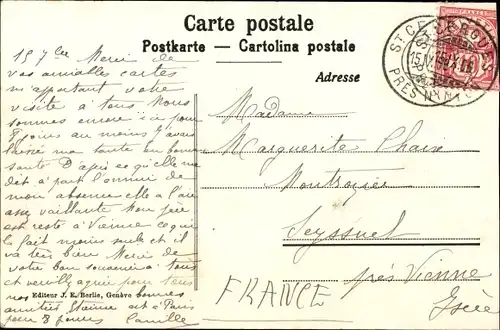 Carte postale
Postkarte — Cartolina postale
Adresse
ST CERGUES
15 IX
PRÈS NYON
15 7bre Merci de
vos aimables cartes
m'apportant votre
visite à tous Nous
sommes encore ici pour
8 jours au moins J'avais
laissé ma tante en bonne
santé D'après ce qu'elle me
dit à part l'ennui de
mon absence elle a l'air
assez vaillante Mon père
est resté à Vienne ce qui
la fait moins seule et il
va très bien Merci de
votre bon souvenir à tous
et
pour nous bonnes
amitiés Etienne est à Paris
pour 8 jours Camille
Madame
Marguerite Chaix
Montrozier
Seyssuel
près Vienne
Isère
FRANCE
Editeur J. E. Berlie, Genève